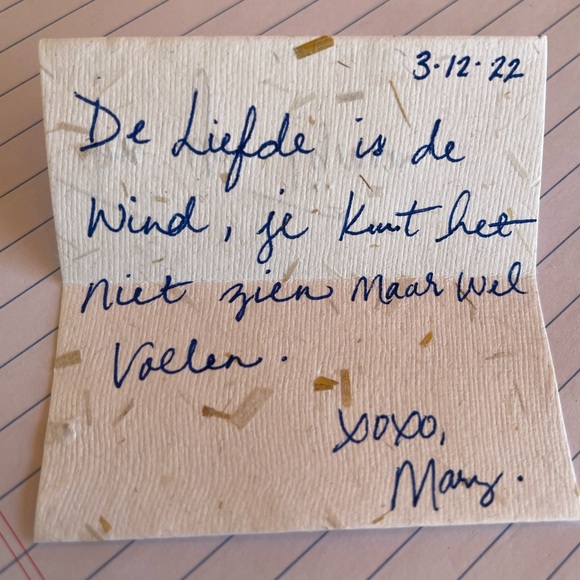 3·12·22
De Liefde is de
Wind, je kunt het
niet zien maar wel
Voelen.
xoxo,
Mary.